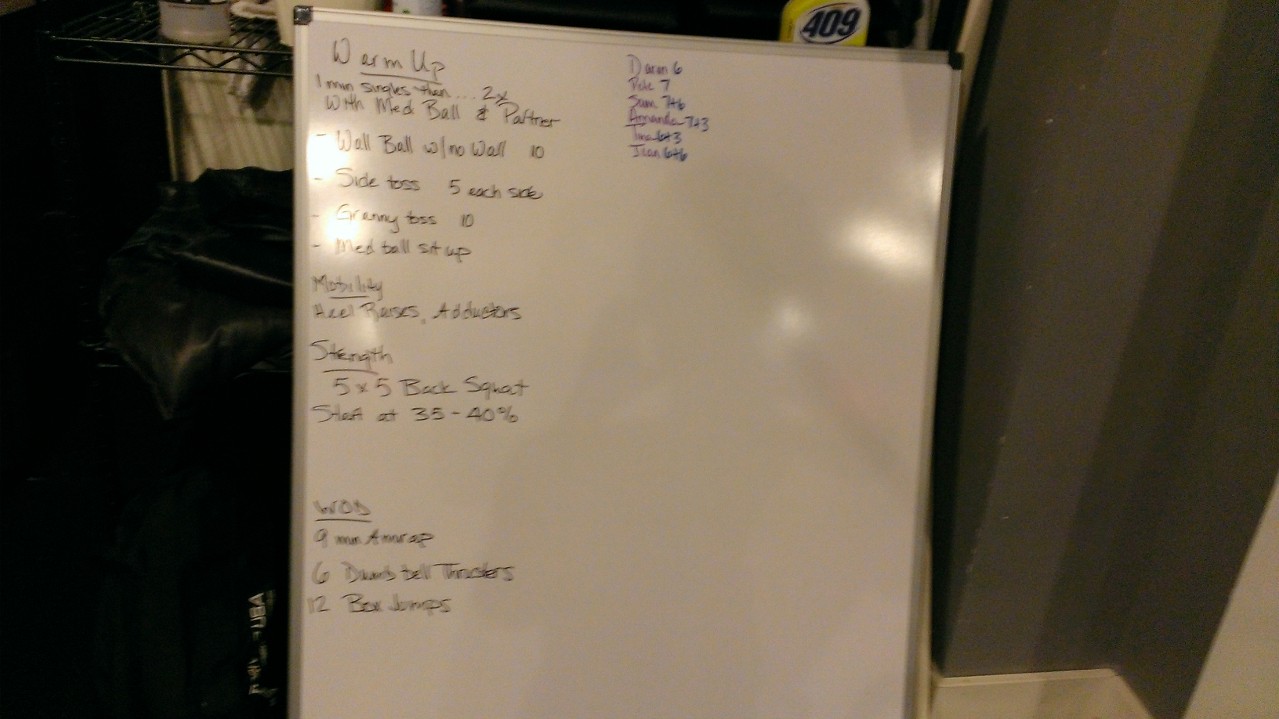 Warm Up
1 min singles than... 2x
With Med Ball & Partner
- Wall Ball w/no Wall 10
- Side toss 5 each side
- Granny toss 10
- Med ball sit up
Mobility
Heel Raises, Adductors
Strength
5 x 5 Back Squat
Start at 35-40%
WOD
9 min Amrap
6 Dumbbell Thrusters
12 Box Jumps
6
Pete 7
Sam 7+6
Amanda 7+3
Tina 6+3
6+6
409